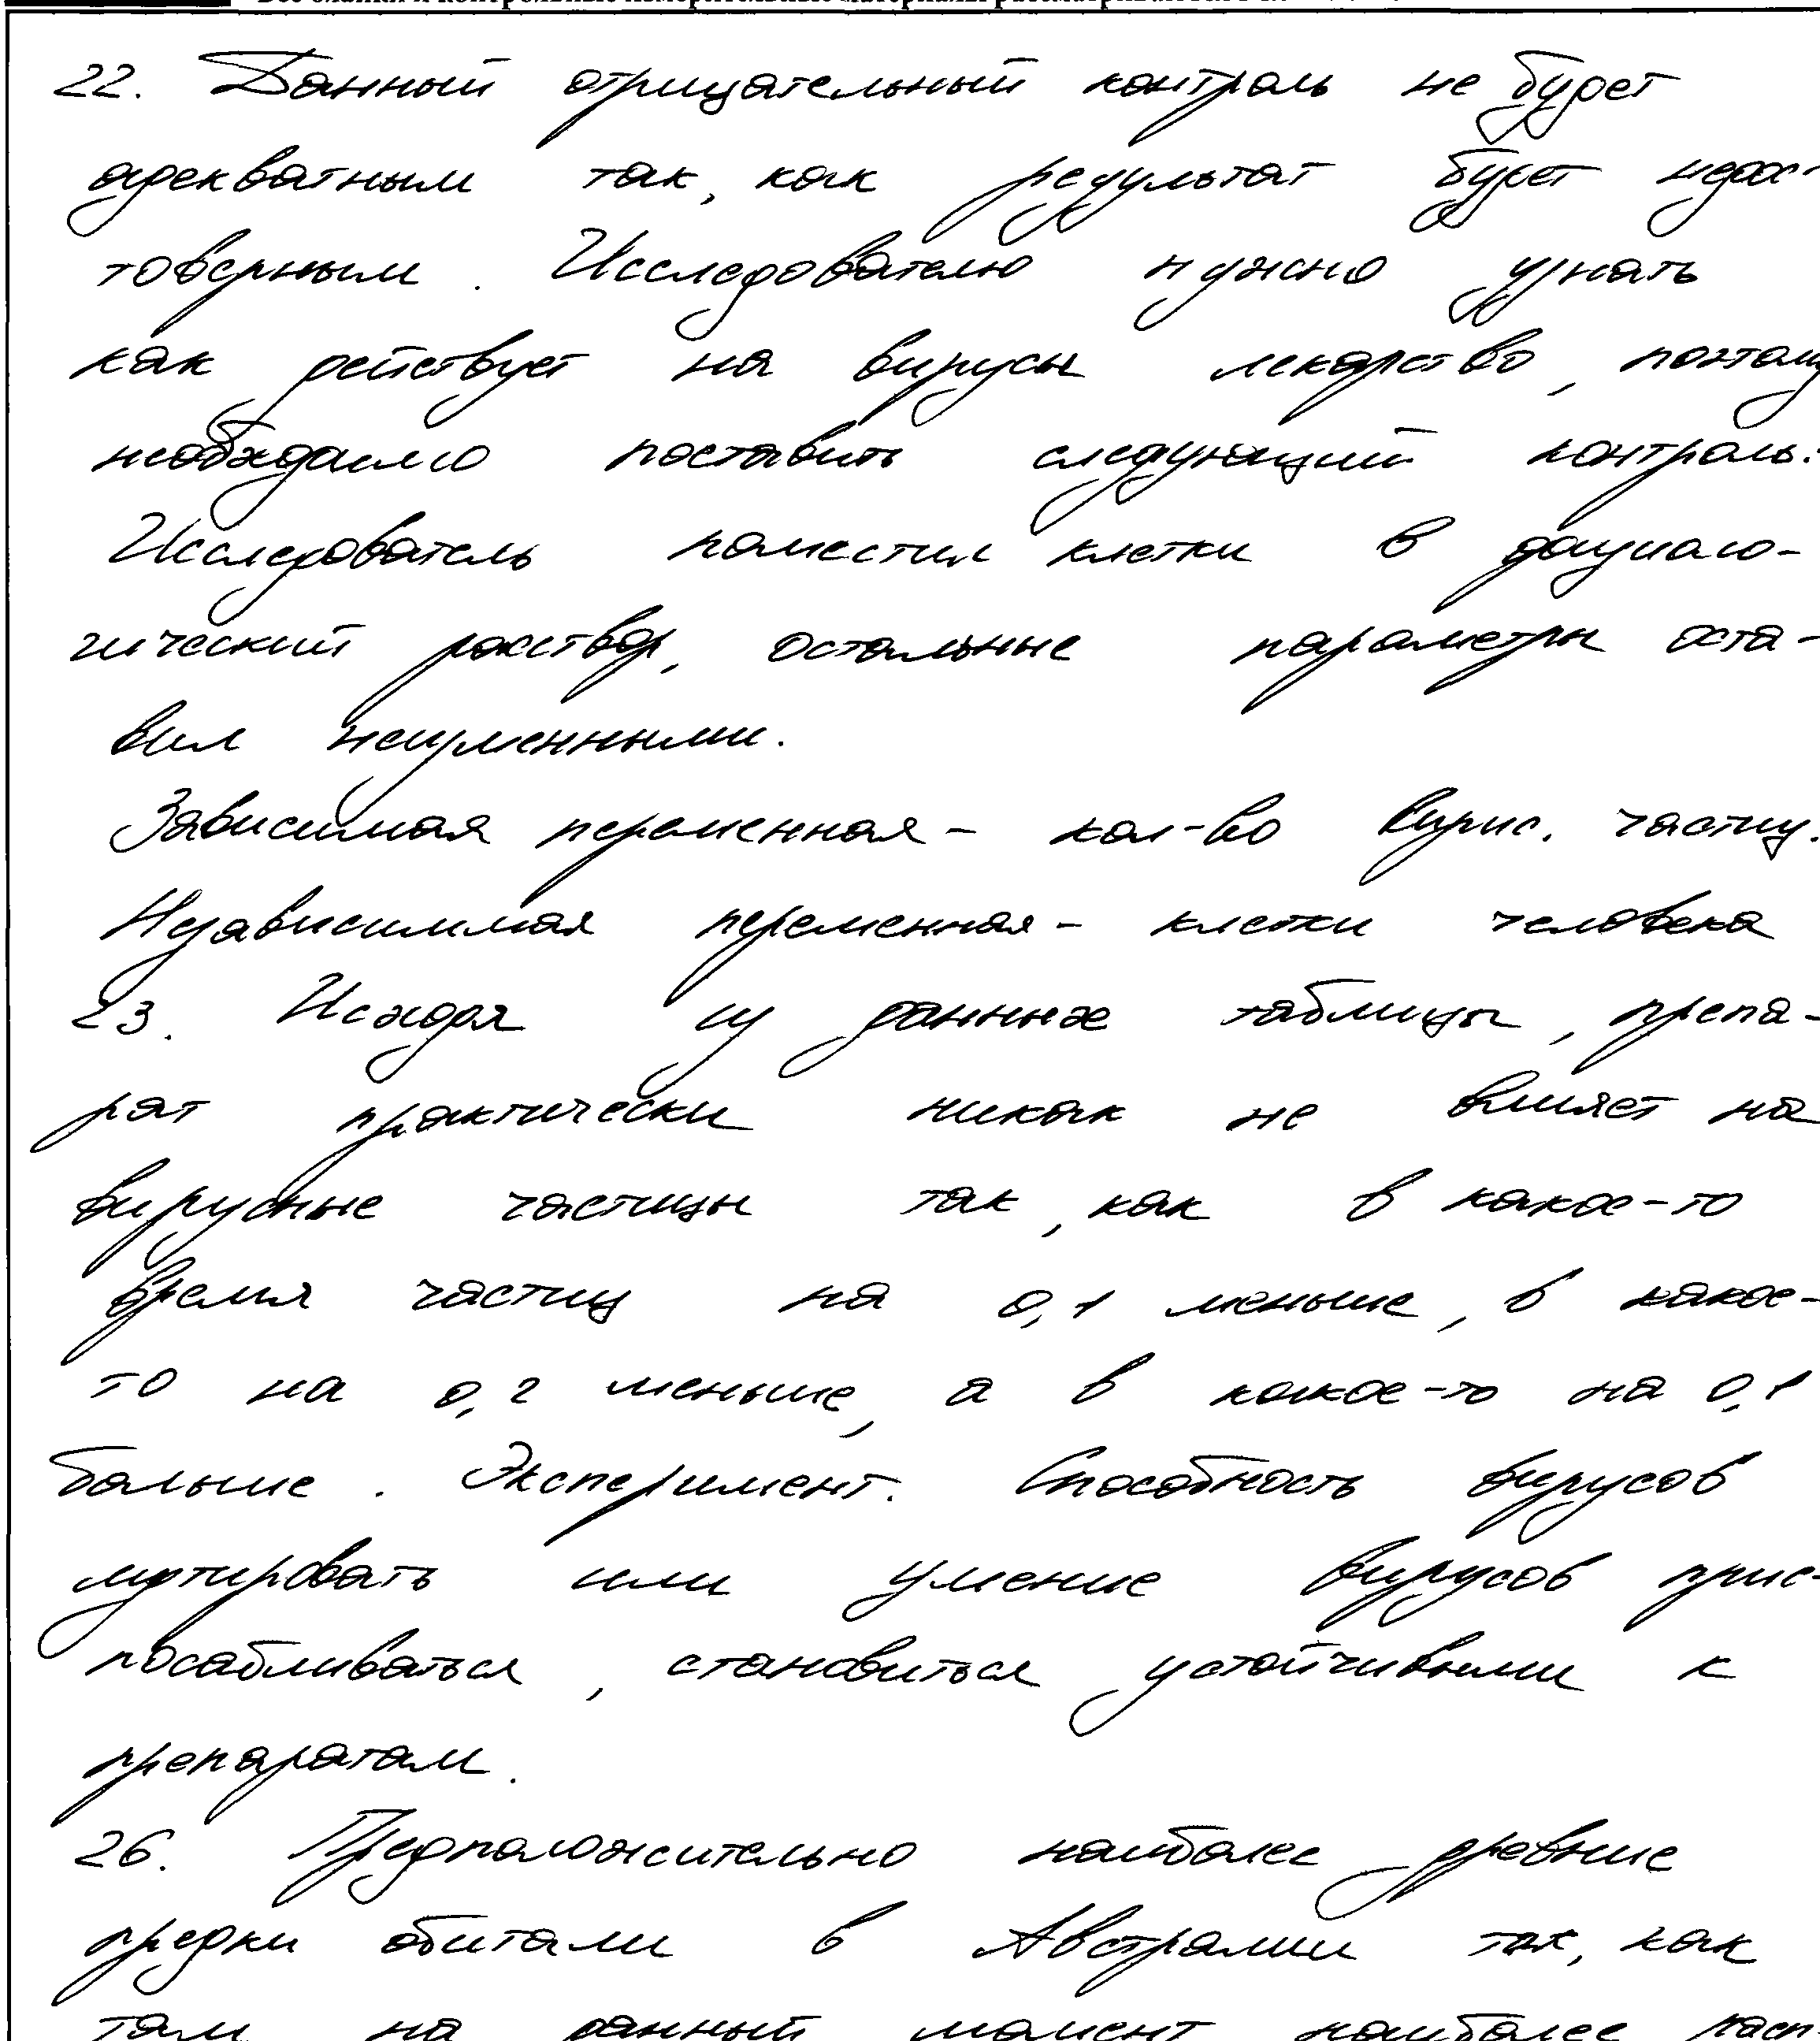 22. Данный отрицательный контроль не будет
адекватным так, как результат будет недос-
товерным. Исследователю нужно узнать
как действует на вирусы лекарство, поэтому
необходимо поставить следующий контроль:
Исследователь поместил клетки в физиоло-
гический раствор, остальные параметры оста-
вил неизменными.
Зависимая переменная - кол-во вирус. частиц.
Независимая переменная - клетки человека
23. Исходя из данных таблицы, препа-
рат практически никак не влияет на
вирусные частицы так, как в какое-то
время частиц на 0,1 меньше, в какое-
то на 0,2 меньше, а в какое-то на 0,1
больше. Эксперимент. Способность вирусов
мутировать или умение вирусов прис-
посабливаться, становиться устойчивыми к
препаратам.
26. Предположительно наиболее древние
предки обитали в Австралии так, как
там на данный момент наиболее